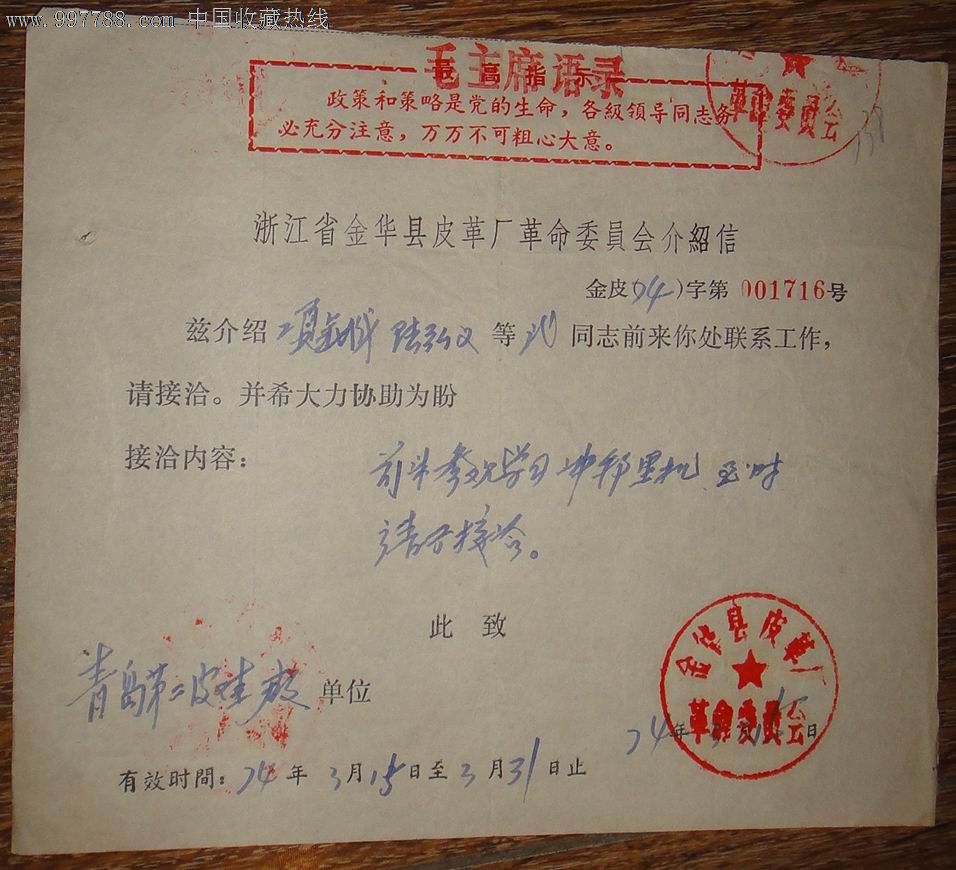 www.997788.com 中国收藏热线
毛主席语录
最高指示
政策和策略是党的生命，各級领导同志务
必充分注意，万万不可粗心大意。
革命委员会
浙江省金华县皮革厂革命委員会介紹信
金皮(74)字第 001716号
兹介绍 陆弘义 等 同志前来你处联系工作，
请接洽。并希大力协助为盼
接洽内容：
前来参观学习 里机
请予接洽。
此致
青岛第二皮革 单位
金华县皮革厂
革命委员会
74年 3月15日
有效时間：74年 3月15日至3月31日止